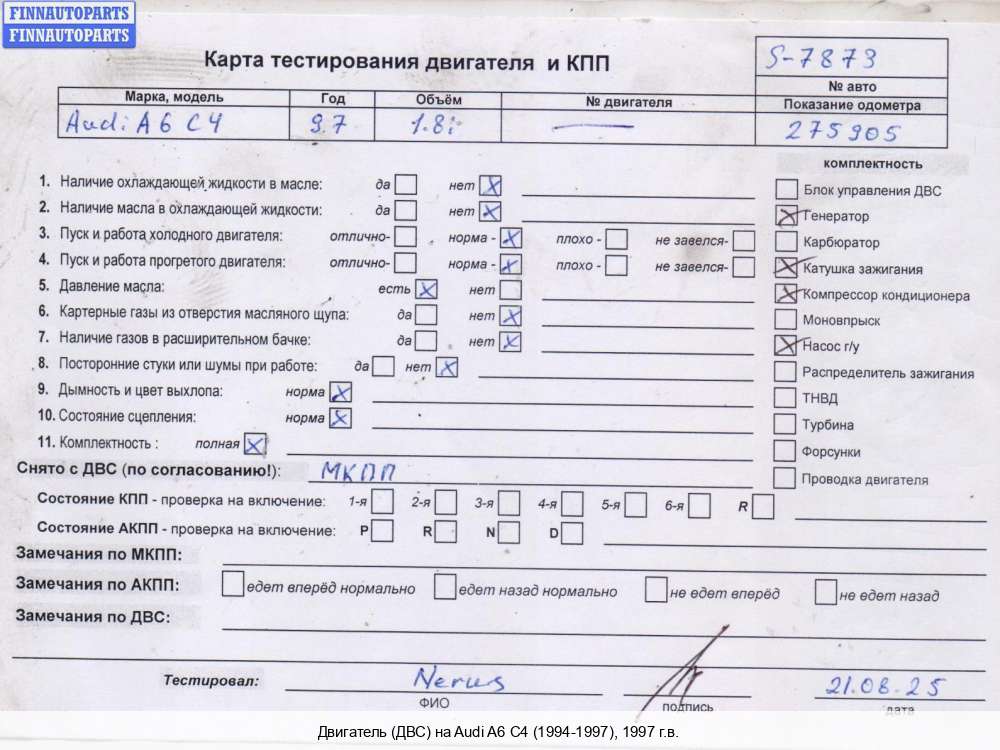 FINNAUTOPARTS
FINNAUTOPARTS
Карта тестирования двигателя и КПП
S-7873
№ авто
Марка, модель Год Объём № двигателя Показание одометра
Audi A6 C4 97 1.8i — 275905
комплектность
1. Наличие охлаждающей жидкости в масле: да нет X
Блок управления ДВС
2. Наличие масла в охлаждающей жидкости: да нет X
X Генератор
3. Пуск и работа холодного двигателя: отлично- норма - X плохо - не завелся-
Карбюратор
4. Пуск и работа прогретого двигателя: отлично- норма - X плохо - не завелся-
X Катушка зажигания
5 Давление масла: есть X нет
X Компрессор кондиционера
6. Картерные газы из отверстия масляного щупа: да нет X
Моновпрыск
7. Наличие газов в расширительном бачке: да нет X
X Насос г/у
8. Посторонние стуки или шумы при работе: да нет X
Распределитель зажигания
9. Дымность и цвет выхлопа: норма X
ТНВД
10. Состояние сцепления: норма X
Турбина
11. Комплектность : полная X
Форсунки
Снято с ДВС (по согласованию!): МКПП
Проводка двигателя
Состояние КПП - проверка на включение: 1-я 2-я 3-я 4-я 5-я 6-я R
Состояние АКПП - проверка на включение: P R N D
Замечания по МКПП:
Замечания по АКПП: едет вперёд нормально едет назад нормально не едет вперёд не едет назад
Замечания по ДВС:
Тестировал: Nerus 21.08.25
ФИО подпись дата
Двигатель (ДВС) на Audi A6 C4 (1994-1997), 1997 г.в.